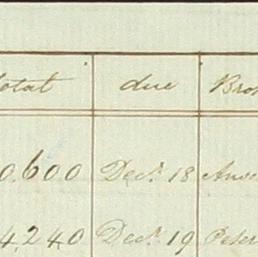 Total due Bro
0,600 Decr. 18
4,240 Decr. 19 Peter